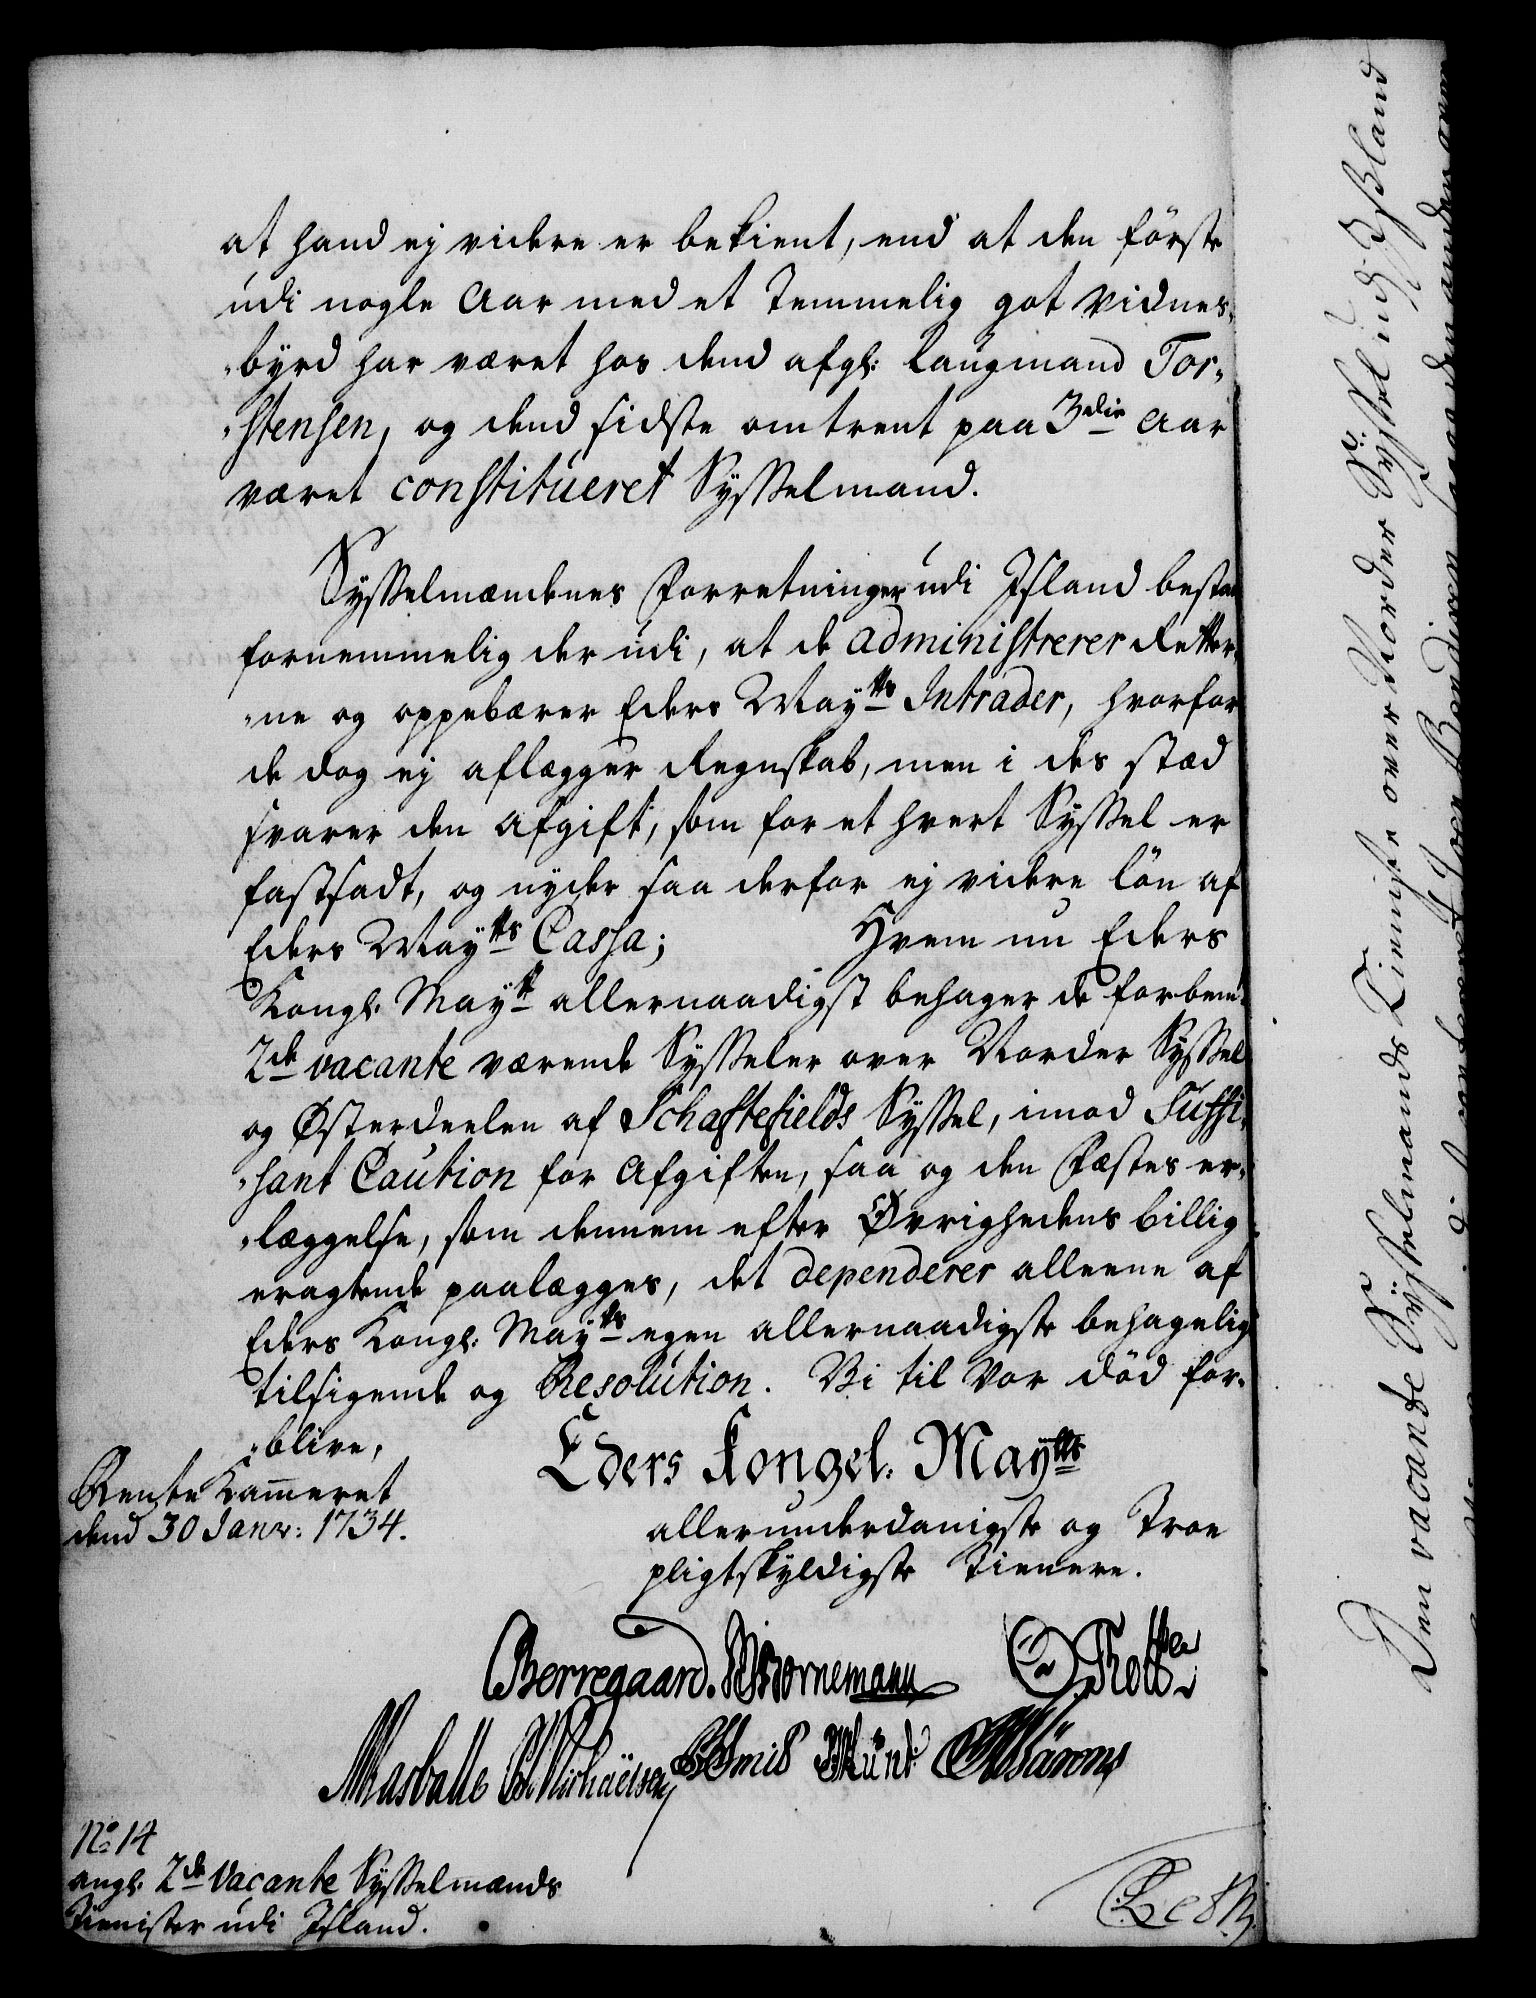 at hand ej videre er bekient, end at den förste
udi nogle Aar med et Temmelig got Vidnes-
-byrd har været hos dend afgl: Laugmand Tor-
-stensen, og dend sidste omtrent paa 3die Aar
været constitueret Sysselmand.
Sysselmændenes Forretninger udi Island bestaar
fornemmelig der udi, at de administrerer Retter-
-ne og oppebærer Eders Mayts Intrader, hvorfor
de dog ej aflægger Regnskab, men i des stæd
svarer den Afgift, som for et hvert Syssel er
fastsadt, og nyder saa derfor ej videre lön af
Eders Mayts Cassa; Hvem nu Eders
Kongl: Mayt allernaadigst behager de forbem:te
2de vacante værende Sysseler over Norder Syssel
og Østerdeelen af Schaftefields Syssel, imod Suffi-
-sant Caution for Afgiften, saa og den Fæstes er-
-læggelse, som dennem efter Øvrighedens billig
eragtende paalægges, det dependerer alleene af
Eders Kongl: Mayts egen allernaadigste behagelig
tilsigende og Resolution. Vi til Vor död for-
-blive,
Eders Kongel: Mayts
Rente Kammeret
dend 30 Janr: 1734.
allerunderdanigste og Troe
pligtskyldigste Tienere.
Berregaard. Bornemann O Thott
Masballe Michaelsen Smid Munt
No 14
angl: 2de Vacante Sysselmands
Tienister udi Island.
Den vacante Sysselmands Tieniste over Norder Syssel udi Island